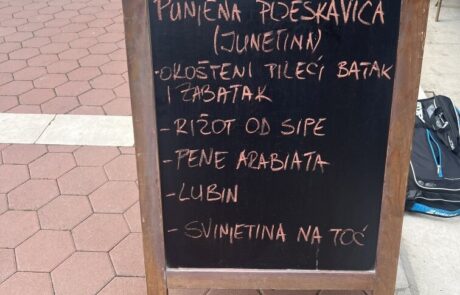 PUNJENA PLJESKAVICA
(JUNETINA)
-OKOŠTENI PILEĆI BATAK
I ZABATAK
- RIŽOT OD SIPE
- PENE ARABIATA
- LUBIN
- SVINJETINA NA TOĆ